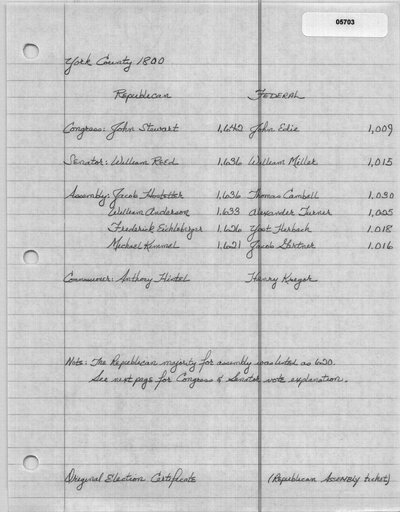 05703
York County 1800
Republican FEDERAL
Congress: John Stewart 1,642 John Edie 1,009
Senator: William Reed 1,636 William Miller 1,015
Assembly: Jacob Hostetter 1,636 Thomas Cambell 1,030
William Anderson 1,633 Alexander Turner 1,005
Frederick Eichleberger 1,626 Yost Herbach 1,018
Michael Kimmel 1,621 Jacob Gartner 1,016
Commissioner: Anthony Hintel Henry Kreger
Note: The Republican majority for assembly was listed as 620.
See next page for Congress & Senator vote explanation.
Original Election Certificate (Republican ASSEMBLY ticket)